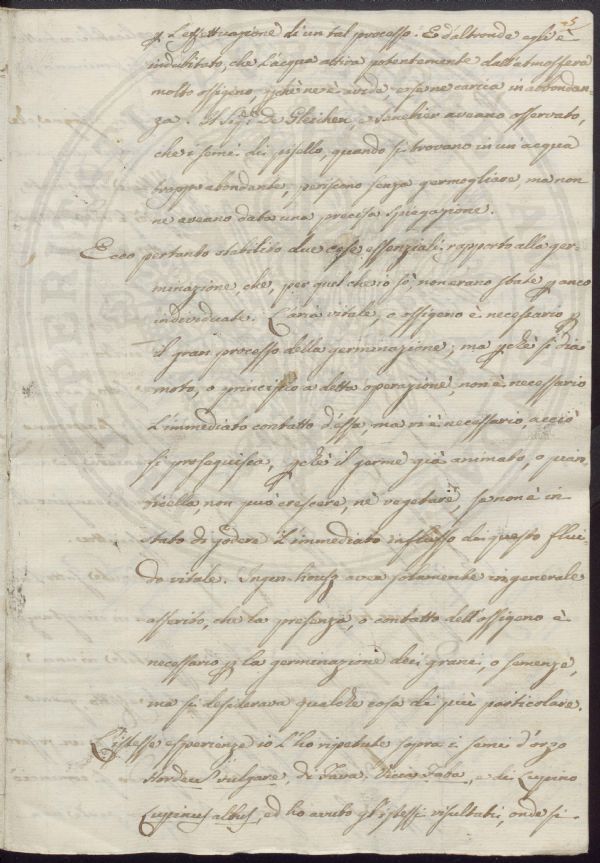 25
p. l'effettuazione di un tal processo. E d'altronde egli è
indubitato, che l'acqua attira potentemente dall'atmosfera
molto ossigeno, pchè ne è avida, e se ne carica in abbondan-
za. Il Sigre De Gleichen, e Senebier aveano osservato,
che i semi di pisello, quando si trovano in un'acqua
troppo abondante, periscono senza germogliare, ma non
ne aveano data una precisa spiegazione.
Ecco pertanto stabilito due cose essenziali, rapporto alla ger-
minazione, che, per quel che io sò, non erano state p anco
individuate. L'aria vitale, o ossigeno è necessario p
il gran processo della germinazione; ma pchè si dia
moto, o principio a detta operazione, non è necessario
l'immediato contatto d'essa, ma vi è necessario acciò
si proseguisca, pchè il germe già animato, o pian-
ticella non può crescere, nè vegetare, se non è in
stato di godere l'immediato influsso di questo flui-
do vitale. Ingen-housz avea solamente in generale
asserito, che la presenza, o contatto dell'ossigeno è
necessario p la germinazione dei grani, o semenze,
ma si desiderava qualche cosa di più particolare.
L'istesse esperienze io l'ho ripetute sopra i semi d'orzo
Hordeu vulgare, di Fava, Vicia Faba, e di Lupino
Lupinus albus, ed ho avuto gl'istessi risultati, onde si